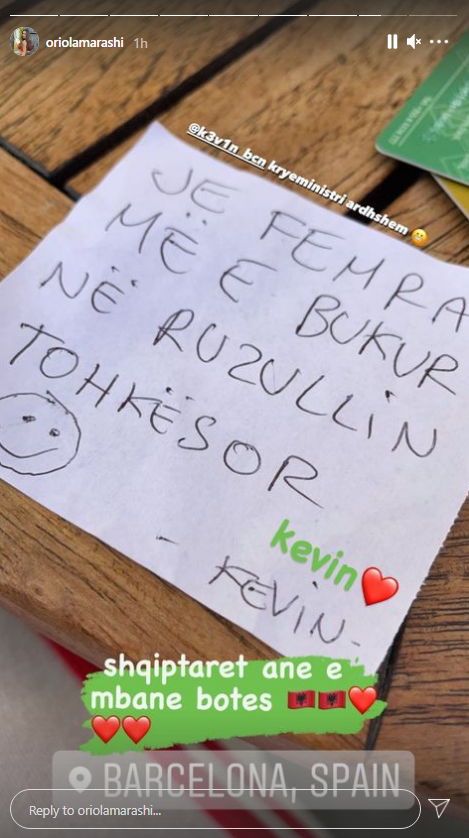 oriolamarashi 1h
@k3v1n_bcn kryeministri ardhshem
JE FEMRA
MË E BUKUR
NË RUZULLIN
TOHKËSOR
kevin
- KEVIN-
shqiptaret ane e
mbane botes
BARCELONA, SPAIN
Reply to oriolamarashi...